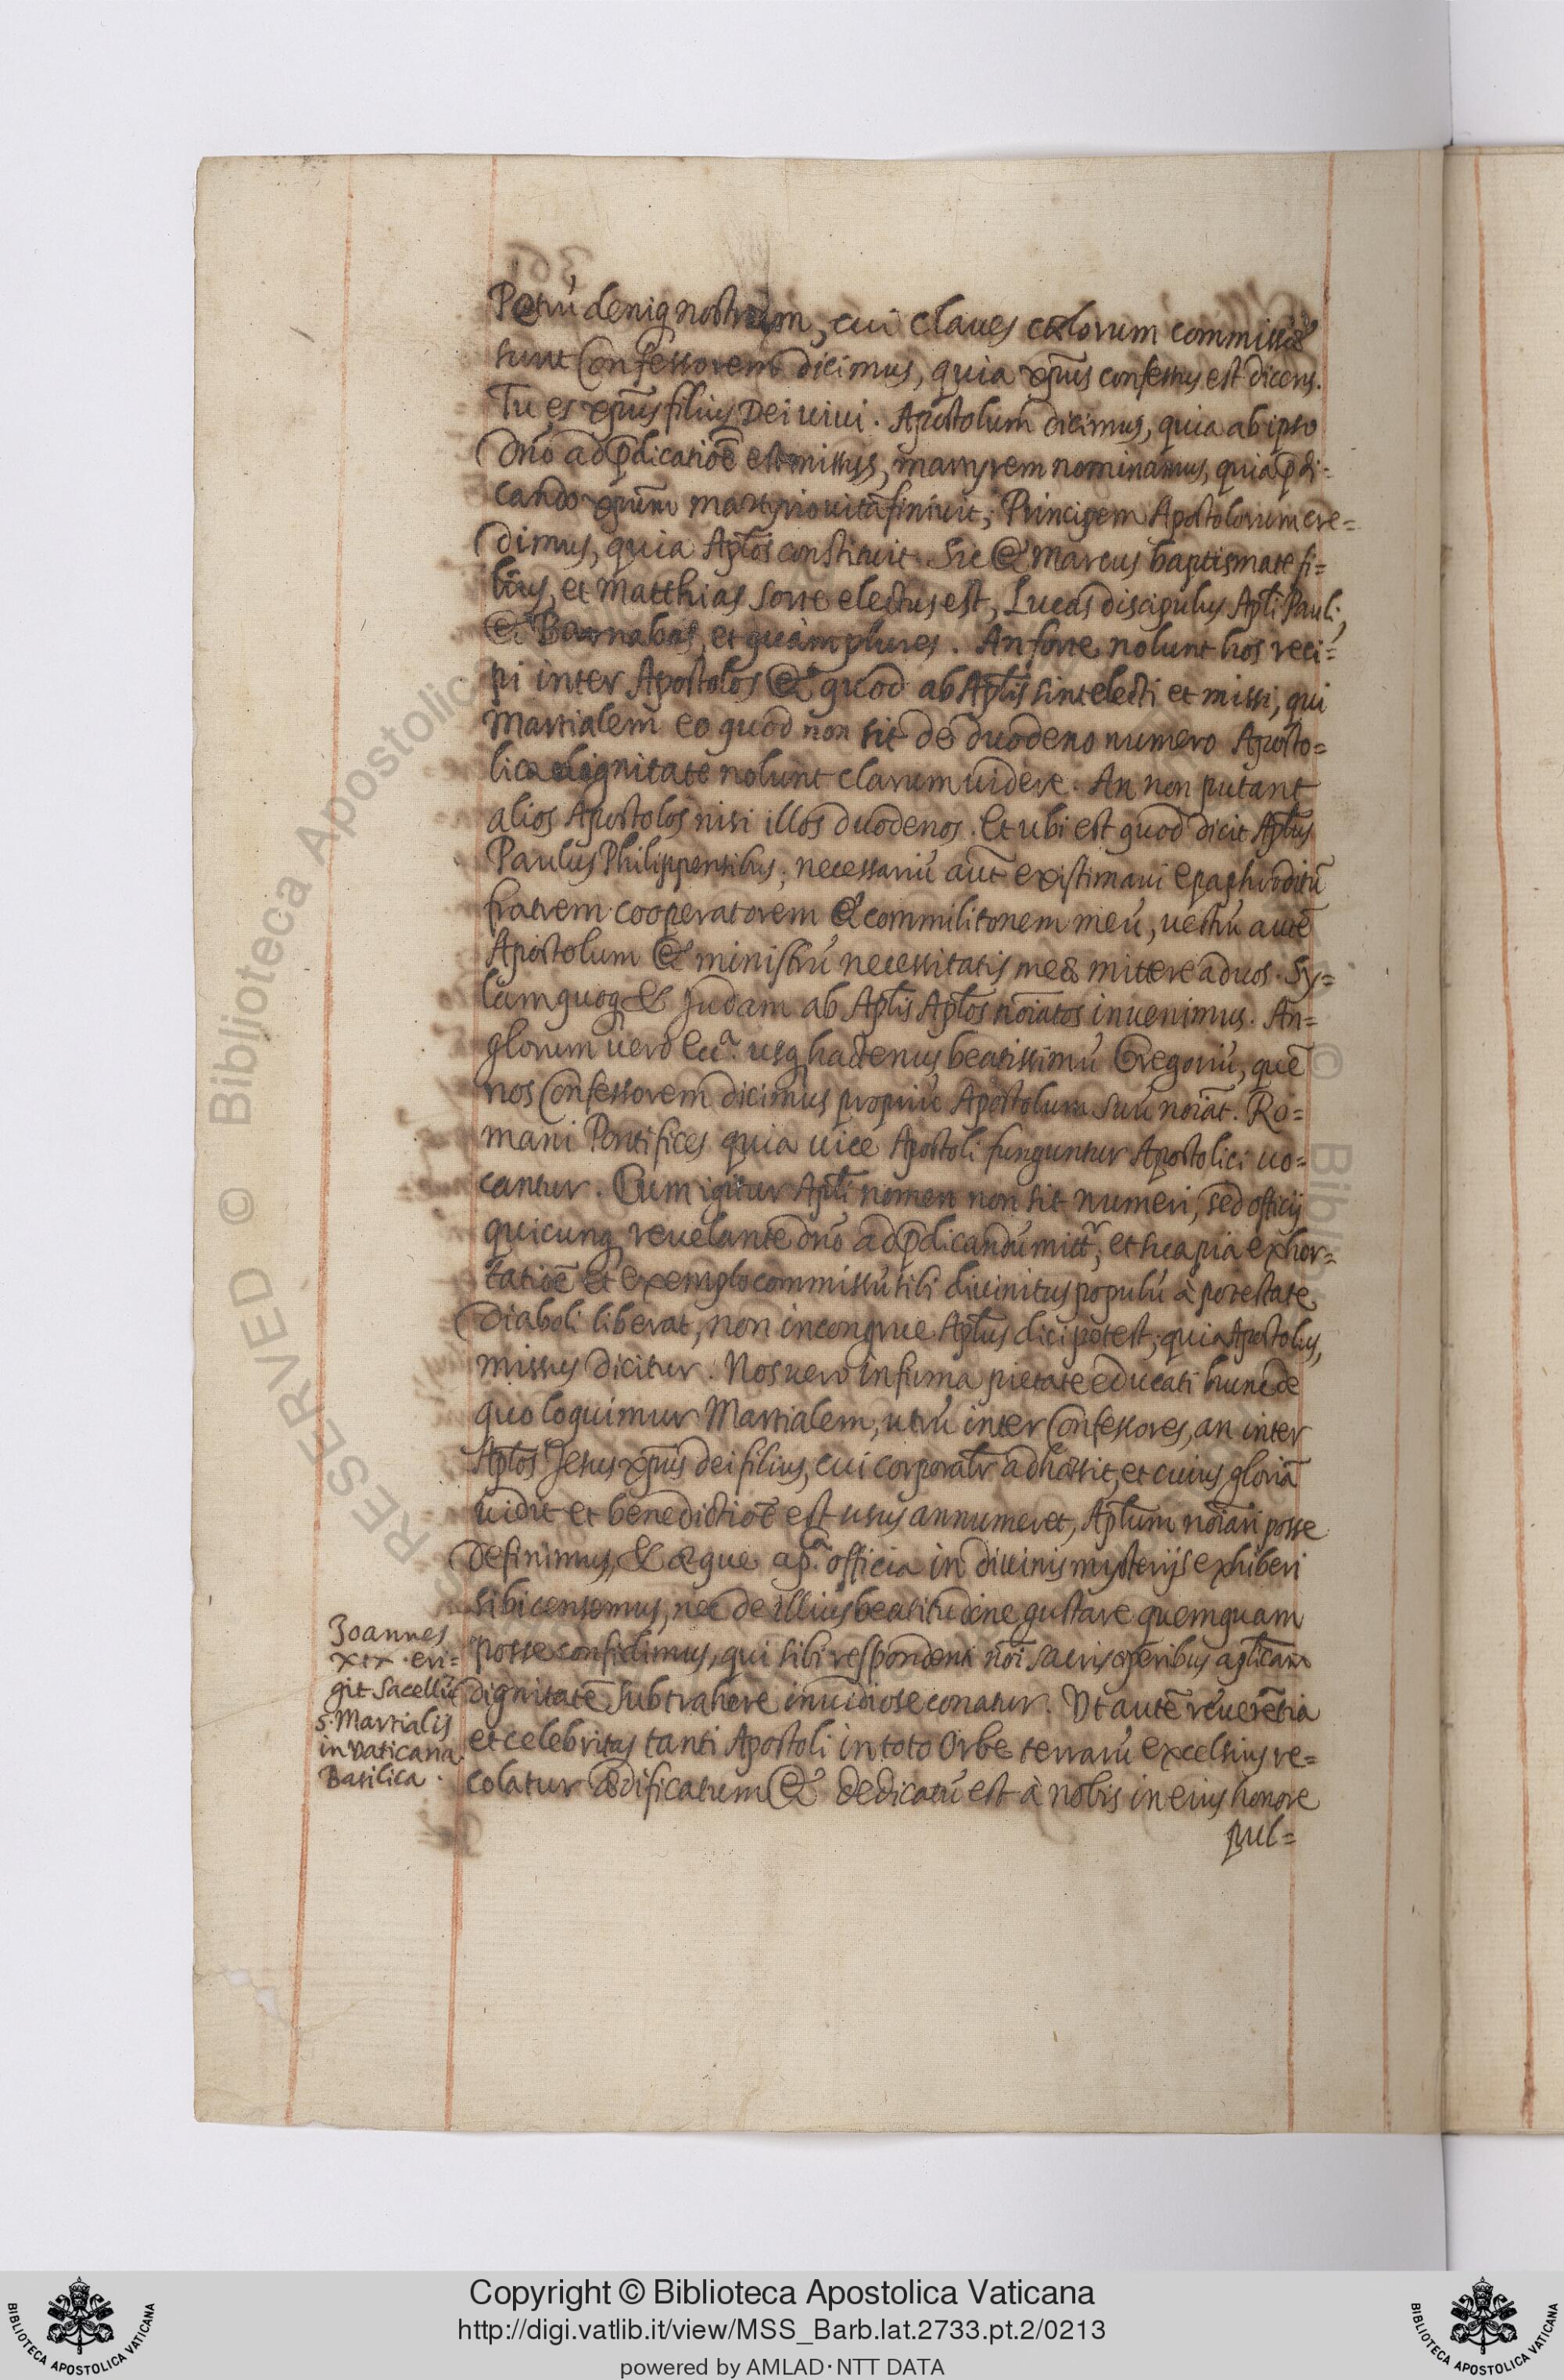 Petrũ deniq nostrum, cui claues cœlorum commissæ
sunt Confessorem dicimus, quia xp̃us confessus est dicens.
Tu es xp̃us filius Dei uiui. Apostolum dicimus, quia ab ipso
Dño ad p̃dicatiõe est missus, martyrem nominamus, quia p̃di=
cando xp̃um martyrio uitã finiuit; Principem Apostolorum cre=
dimus, quia Aplõs constituit. Sic & Marcus baptismate fi=
lius, et Matthias sorte electus est, Lucas discipulus Apli Pauli,
& Barnabas, et quàm plures. An forte nolunt hos reci=
pi inter Apostolos & quod ab Aplis sint electi et missi, qui
Martialem eo quod non sit de duodeno numero Aposto=
lica dignitate nolunt clarum uidere. An non putant
alios Apostolos nisi illos duodenos. Et ubi est quod dicit Aplus
Paulus Philippensibus; necessariũ aut existimaui epaphroditũ
fratrem cooperatorem & commilitonem meũ, uestrũ autẽ
Apostolum & ministrũ necessitatis meæ mittere ad uos. Sy=
lam quoq & Judam ab Aplis Aplõs noĩatos inuenimus. An=
glorum uero Ecca. usq hactenus beatissimũ Gregoriũ, quẽ
nos Confessorem dicimus propriũ Apostolum suũ noĩat. Ro=
mani Pontifices quia uice Apostoli funguntur Apostolici uo=
cantur. Cum igitur Apli nomen non sit numeri, sed officij
quicunq reuelante dño ad p̃dicandũ mittr, et sua pia exhor=
tatiõe et exemplo commissũ sibi diuinitus populũ à potestate
Diaboli liberat, non incongrue Aplus dici potest; quia Apostolus,
missus dicitur. Nos uero infirma pietate educati hunc de
quo loquimur Martialem, utrũ inter Confessores, an inter
Aplõs Jesus xp̃us dei filius, cui corporalr adhæsit, et cuius gloriã
uidit et benedictiõe est usus annumeret, Aplum noĩari posse
Definimus, & æque apca. officia in diuinis mysterijs exhiberi
sibi censemus, nec de illius beatitudine gustare quemquam
posse confidimus, qui sibi respondenti noĩ sacris operibus aplicam
dignitatẽ subtrahere inuidiose conatur. Ut autẽ reuerẽtia
et celebritas tanti Apostoli in toto Orbe terrarũ excelsius re=
colatur ædificatum & dedicatũ est à nobis in eius honore
pul=
Joannes
xix. eri=
git sacellũ
S. Martialis
in Vaticana
Basilica.
Copyright © Biblioteca Apostolica Vaticana
http://digi.vatlib.it/view/MSS_Barb.lat.2733.pt.2/0213
powered by AMLAD·NTT DATA
BIBLIOTECA APOSTOLICA VATICANA
BIBLIOTECA APOSTOLICA VATICANA